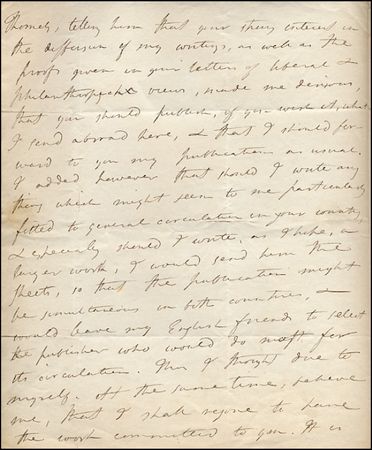 Thomely, telling him that your strong interest in
the diffusion of my writings, as well as the
proofs given in your letters of liberal &
philanthropick views, made me desirous,
that you should publish, if you wish it, what
I send abroad here, & that I should for-
ward to you my publications as usual.
I added however that should I write any
thing which might seem to me particularly
fitted to general circulation in your country,
& especially should I write, as I hope, a
larger work, I would send him the
sheets, so that the publication might
be simultaneous in both countries, &
would leave my English friends to select
the publisher who would do most for
its circulation. This I thought due to
myself. At the same time, believe
me, that I shall rejoice to have
the work committed to you. It is